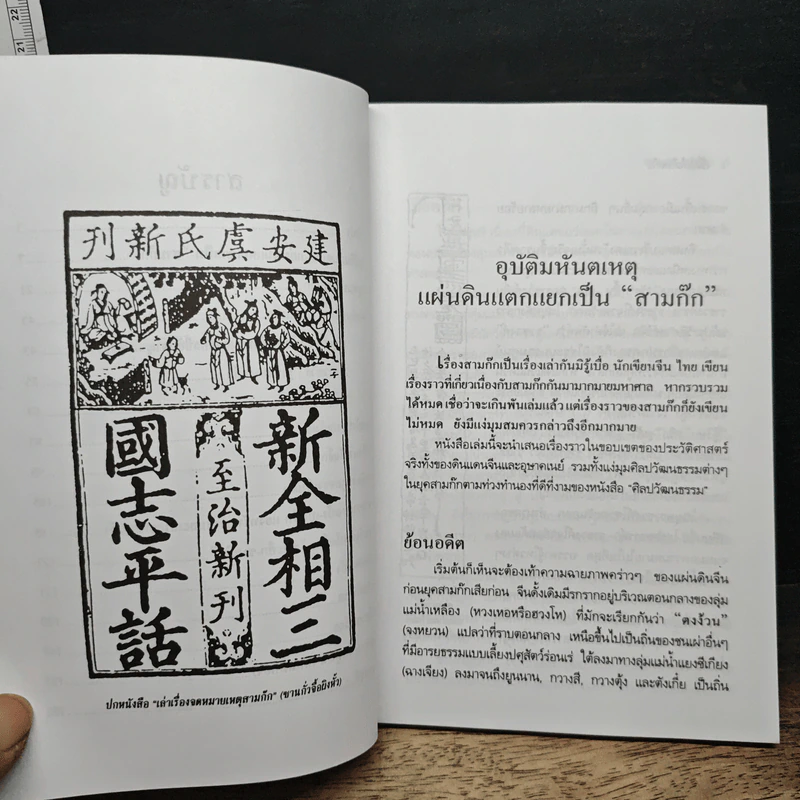 22
21
建安虞氏新刊
新全相三
至治新刊
國志平話
ปกหนังสือ “เล่าเรื่องจดหมายเหตุสามก๊ก” (ซานกั๋วจื้อผิงหั้ว)
อุบัติมหันตเหตุ
แผ่นดินแตกแยกเป็น “สามก๊ก”
เรื่องสามก๊กเป็นเรื่องเล่ากันมิรู้เบื่อ นักเขียนจีน ไทย เขียน
เรื่องราวที่เกี่ยวเนื่องกับสามก๊กกันมามากมายมหาศาล หากรวบรวม
ได้หมด เชื่อว่าจะเกินพันเล่มแล้ว แต่เรื่องราวของสามก๊กก็ยังเขียน
ไม่หมด ยังมีแง่มุมสมควรกล่าวถึงอีกมากมาย
หนังสือเล่มนี้จะนำเสนอเรื่องราวในขอบเขตของประวัติศาสตร์
จริงทั้งของดินแดนจีนและอุษาคเนย์ รวมทั้งแง่มุมศิลปวัฒนธรรมต่างๆ
ในยุคสามก๊กตามท่วงทำนองที่ดีที่งามของหนังสือ “ศิลปวัฒนธรรม”
ย้อนอดีต
เริ่มต้นก็เห็นจะต้องเท้าความฉายภาพคร่าวๆ ของแผ่นดินจีน
ก่อนยุคสามก๊กเสียก่อน จีนดั้งเดิมมีรกรากอยู่บริเวณตอนกลางของลุ่ม
แม่น้ำเหลือง (หวงเหอหรือฮวงโห) ที่มักจะเรียกกันว่า “ตงง้วน”
(จงหยวน) แปลว่าที่ราบตอนกลาง เหนือขึ้นไปเป็นถิ่นของชนเผ่าอื่นๆ
ที่มีอารยธรรมแบบเลี้ยงปศุสัตว์ร่อนเร่ ใต้ลงมาทางลุ่มแม่น้ำแยงซีเกียง
(ฉางเจียง) ลงมาจนถึงยูนนาน, กวางสี, กวางตุ้ง และตังเกี๋ย เป็นถิ่น